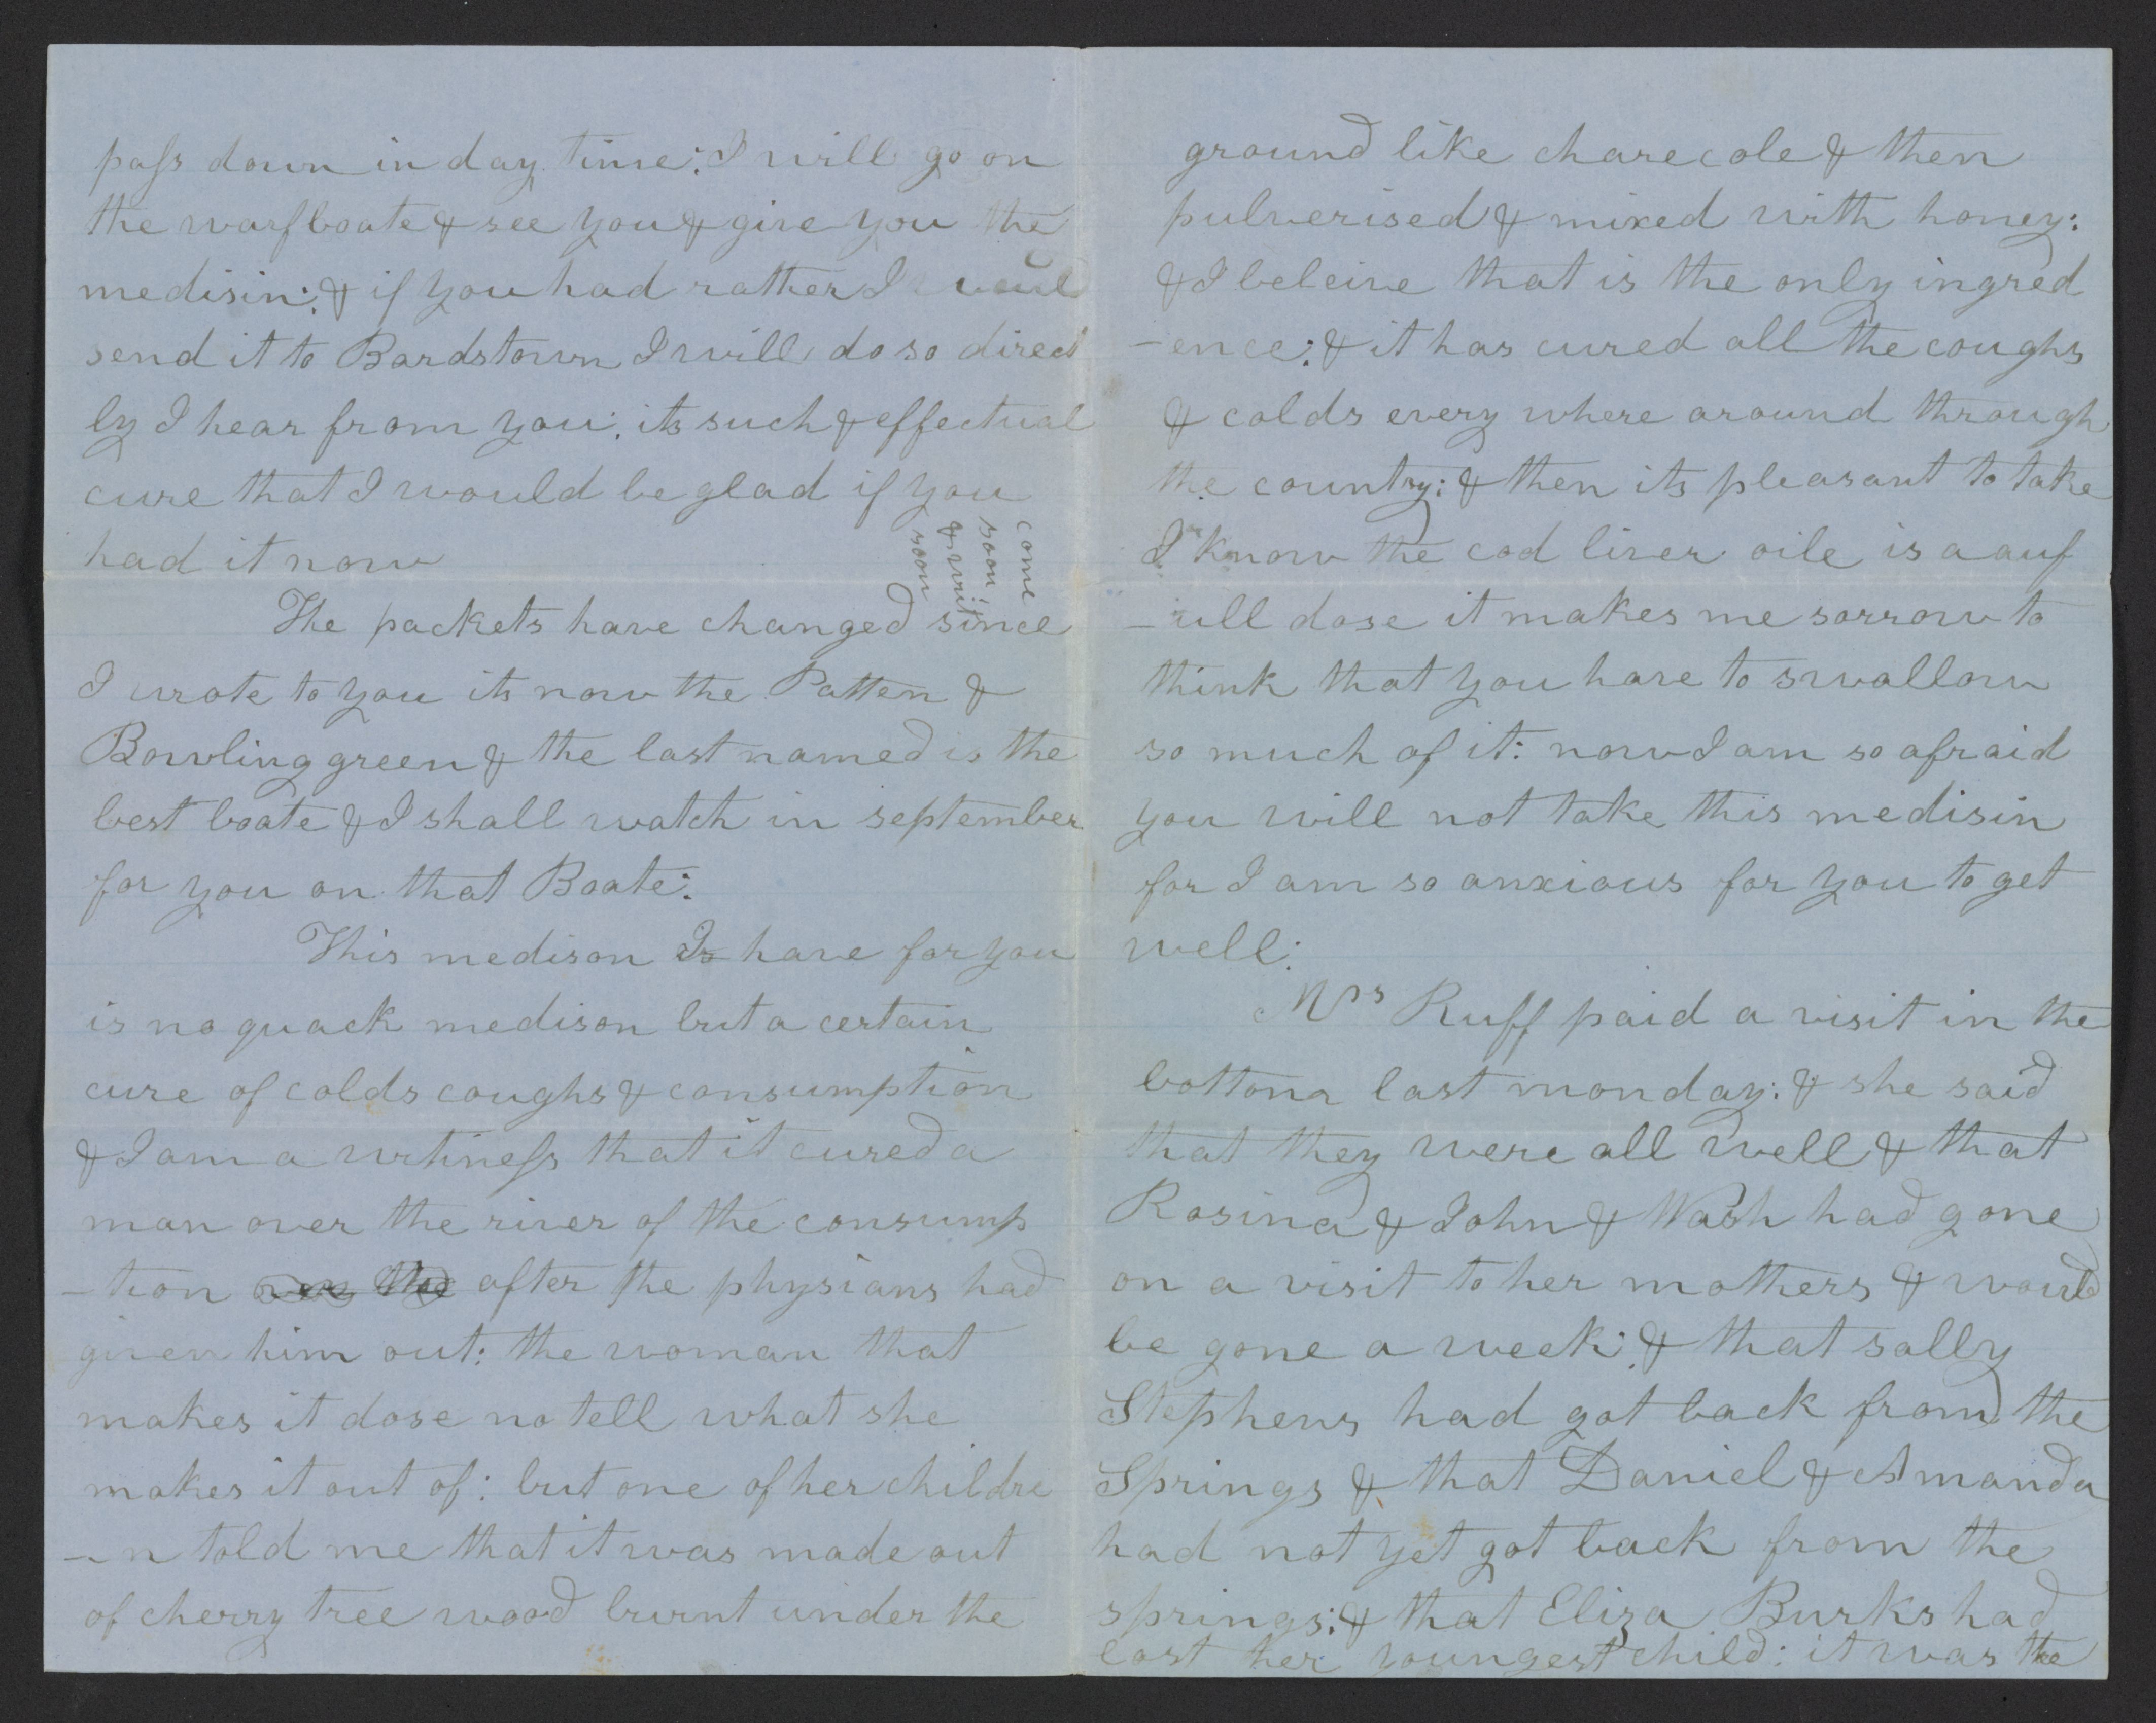 pass down in day time: I will go on
the warfboate & see you & give you the
medisin: & if you had rather I would
send it to Bardstown I will do so direct
ly I hear from you: its such & effectual
cure that I would be glad if you
had it now
come
soon
& writ
soon
The packets have changed since
I wrote to you its now the Patten &
Bowling green & the last named is the
best boate & I shall watch in september
for you on that Boate:
This medison Is have for you
is no quack medison but a certain
cure of colds coughs & consumption
& I am a wtiness that it cured a
man over the river of the consump
-tion the after the physians had
given him out: the woman that
makes it dose no tell what she
makes it out of: but one of her childre
-n told me that it was made out
of cherry tree wood burnt under the
ground like charecole & then
pulverised & mixed with honey:
& I beleive that is the only ingred
-ence: & it has cured all the coughs
& colds every where around through
the country: & then its pleasant to take
I know the cod liver oile is a auf
-ull dose it makes me sorrow to
think that you have to swallow
so much of it: now I am so afraid
you will not take this medisin
for I am so anxious for you to get
well:
Mrs Ruff paid a visit in the
bottom last monday: & she said
that they were all well & that
Rosina & John & Wash had gone
on a visit to her mothers & would
be gone a week: & that sally
Stephens had got back from the
Springs & that Daniel & Amanda
had not yet got back from the
springs: & that Eliza Burks had
lost her youngest child: it was the